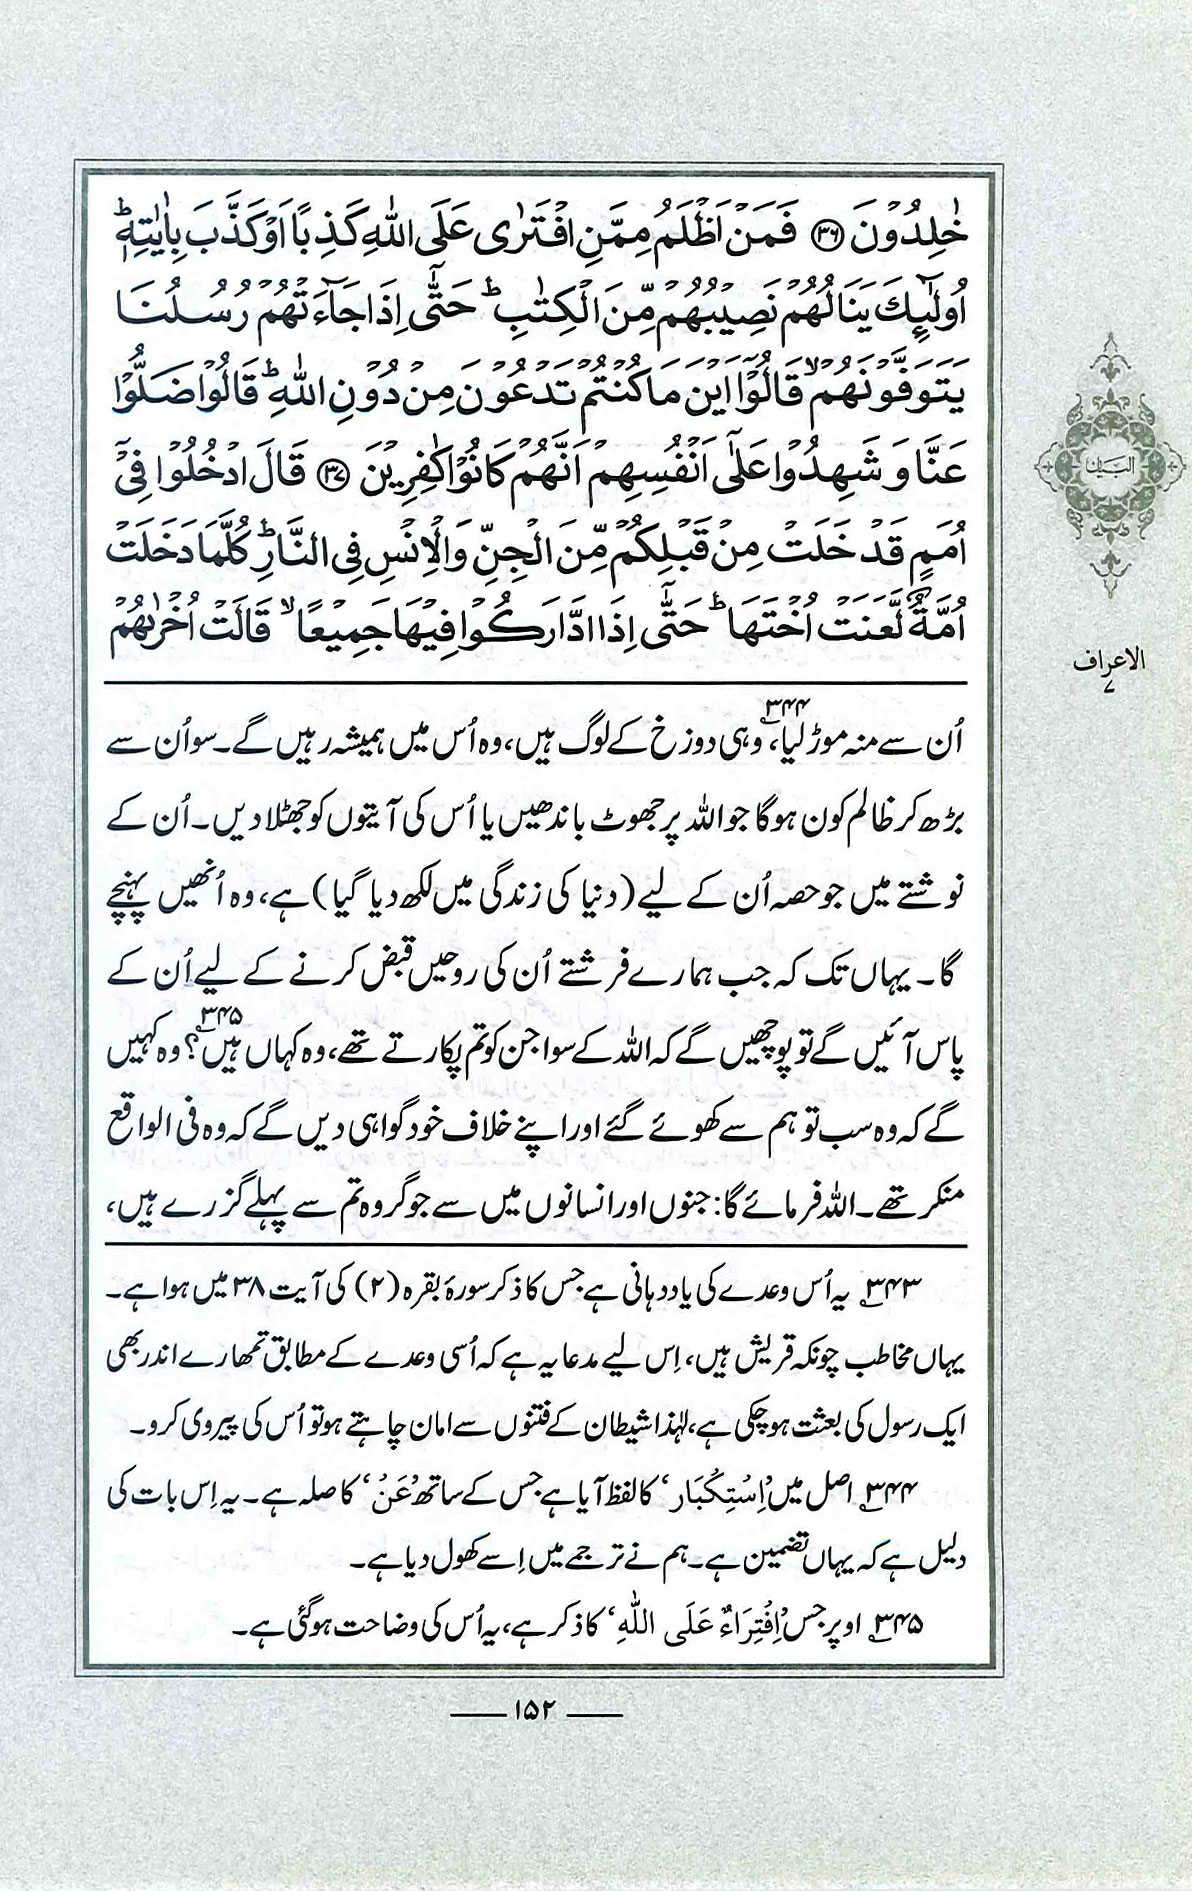 خٰلِدُوۡنَ ﴿۳۶﴾ فَمَنۡ اَظۡلَمُ مِمَّنِ افۡتَرٰی عَلَی اللّٰہِ کَذِبًا اَوۡ کَذَّبَ بِاٰیٰتِہٖ ؕ
اُولٰٓئِکَ یَنَالُہُمۡ نَصِیۡبُہُمۡ مِّنَ الۡکِتٰبِ ؕ حَتّٰۤی اِذَا جَآءَتۡہُمۡ رُسُلُنَا
یَتَوَفَّوۡنَہُمۡ ۙ قَالُوۡۤا اَیۡنَ مَا کُنۡتُمۡ تَدۡعُوۡنَ مِنۡ دُوۡنِ اللّٰہِ ؕ قَالُوۡا ضَلُّوۡا
عَنَّا وَ شَہِدُوۡا عَلٰۤی اَنۡفُسِہِمۡ اَنَّہُمۡ کَانُوۡا کٰفِرِیۡنَ ﴿۳۷﴾ قَالَ ادۡخُلُوۡا فِیۡۤ
اُمَمٍ قَدۡ خَلَتۡ مِنۡ قَبۡلِکُمۡ مِّنَ الۡجِنِّ وَ الۡاِنۡسِ فِی النَّارِ ؕ کُلَّمَا دَخَلَتۡ
اُمَّۃٌ لَّعَنَتۡ اُخۡتَہَا ؕ حَتّٰۤی اِذَا ادَّارَکُوۡا فِیۡہَا جَمِیۡعًا ۙ قَالَتۡ اُخۡرٰىہُمۡ
البیان
الاعراف
۷
اُن سے منہ موڑ لیا،۳۴۴ وہی دوزخ کے لوگ ہیں، وہ اُس میں ہمیشہ رہیں گے۔ سو اُن سے
بڑھ کر ظالم کون ہوگا جو اللہ پر جھوٹ باندھیں یا اُس کی آیتوں کو جھٹلا دیں۔ اُن کے
نوشتے میں جو حصہ اُن کے لیے (دنیا کی زندگی میں لکھ دیا گیا) ہے، وہ اُنھیں پہنچے
گا۔ یہاں تک کہ جب ہمارے فرشتے اُن کی روحیں قبض کرنے کے لیے اُن کے
پاس آئیں گے تو پوچھیں گے کہ اللہ کے سوا جن کو تم پکارتے تھے، وہ کہاں ہیں۳۴۵؟ وہ کہیں
گے کہ وہ سب تو ہم سے کھوئے گئے اور اپنے خلاف خود گواہی دیں گے کہ وہ فی الواقع
منکر تھے۔ اللہ فرمائے گا: جنوں اور انسانوں میں سے جو گروہ تم سے پہلے گزرے ہیں،
۳۴۳ یہ اُس وعدے کی یاددہانی ہے جس کا ذکر سورۂ بقرہ (۲) کی آیت ۳۸ میں ہوا ہے۔
یہاں مخاطب چونکہ قریش ہیں، اِس لیے مدعا یہ ہے کہ اُسی وعدے کے مطابق تمھارے اندر بھی
ایک رسول کی بعثت ہو چکی ہے، لہٰذا شیطان کے فتنوں سے امان چاہتے ہو تو اُس کی پیروی کرو۔
۳۴۴ اصل میں ’اِسْتِکْبَار‘ کا لفظ آیا ہے جس کے ساتھ ’عَنْ‘ کا صلہ ہے۔ یہ اِس بات کی
دلیل ہے کہ یہاں تضمین ہے۔ ہم نے ترجمے میں اِسے کھول دیا ہے۔
۳۴۵ اوپر جس ’اِفْتِرَاءٌ عَلَی اللّٰہِ‘ کا ذکر ہے، یہ اُس کی وضاحت ہو گئی ہے۔
۱۵۲